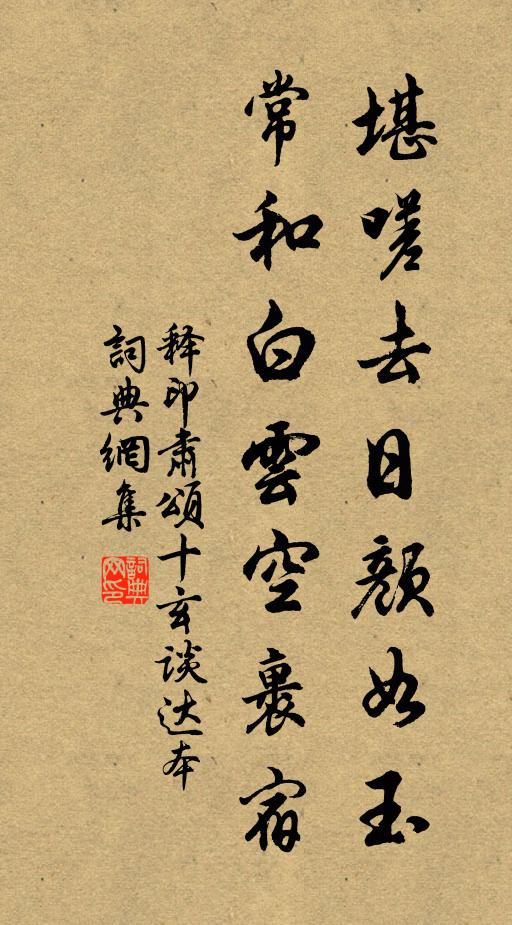 堪嗟去日顏如玉
常和白雲空裏宿
释印肃頌十玄談达本
詞典網集
詞典网印